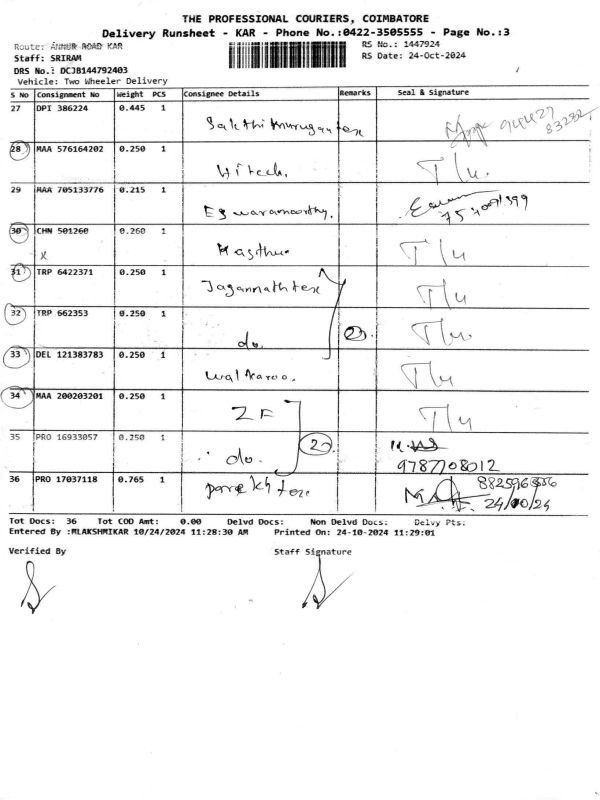 THE PROFESSIONAL COURIERS, COIMBATORE
Delivery Runsheet - KAR - Phone No.:0422-3505555 - Page No.:3
Route: ANNUR ROAD KAR
RS No.: 1447924
Staff: SRIRAM
RS Date: 24-Oct-2024
DRS No.: DCJB144792403
Vehicle: Two Wheeler Delivery
S No Consignment No Weight PCS Consignee Details Remarks Seal & Signature
27 DPI 386224 0.445 1 Sakthi Murugan tex
28 MAA 576164202 0.250 1 Hitech. T/u.
29 MAA 705133776 0.215 1 Eswaramoorthy.
30 CHN 501260 0.260 1 T/u
x
31 TRP 6422371 0.250 1 Jagannath tex T/u
32 TRP 662353 0.250 1 do. 2 T/u.
33 DEL 121383783 0.250 1 Walkaroo. T/u
34 MAA 200203201 0.250 1 ZF T/u
35 PRO 16933057 0.250 1 do. 2
9787708012
36 PRO 17037118 0.765 1 Parekh tex
24/10/24
Tot Docs: 36 Tot COD Amt: 0.00 Delvd Docs: Non Delvd Docs: Delvy Pts:
Entered By :MLAKSHMIKAR 10/24/2024 11:28:30 AM Printed On: 24-10-2024 11:29:01
Verified By Staff Signature